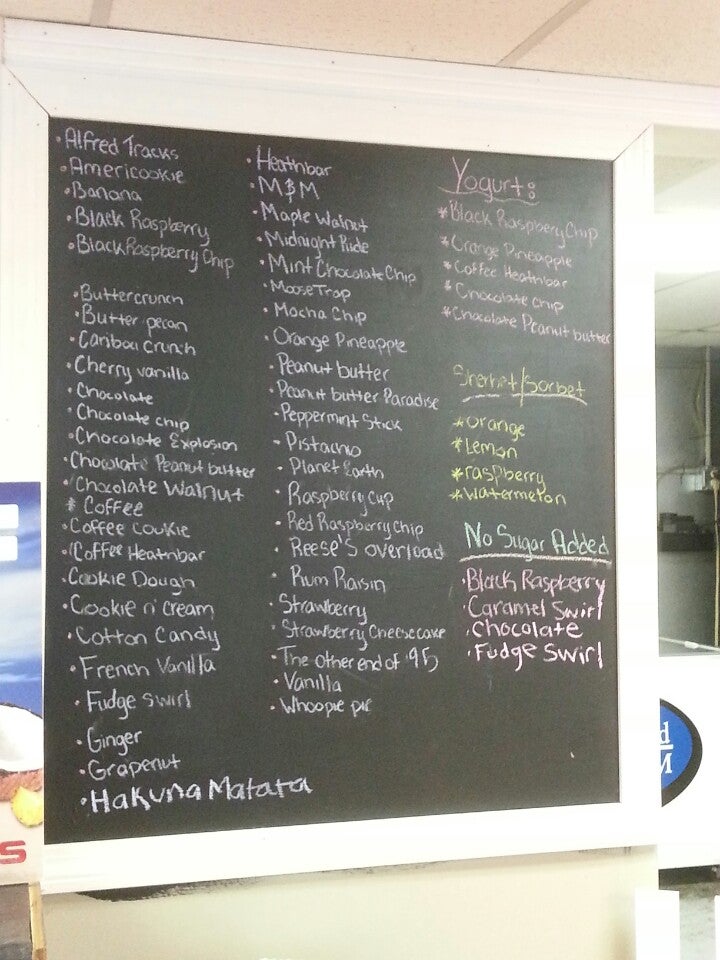 • Alfred Tracks
• Americookie
• Banana
• Black Raspberry
• Black Raspberry Chip
• Buttercrunch
• Butter pecan
• Caribou Crunch
• Cherry vanilla
• Chocolate
• Chocolate chip
• Chocolate Explosion
• Chocolate Peanut butter
• Chocolate Walnut
* Coffee
• Coffee Cookie
• Coffee Heathbar
• Cookie Dough
• Cookie n' cream
• Cotton Candy
• French Vanilla
• Fudge swirl
• Ginger
• Grapenut
• Hakuna Matata
• Heathbar
• M&M
• Maple Walnut
• Midnight Ride
• Mint Chocolate Chip
• Moose Trap
• Mocha Chip
• Orange Pineapple
• Peanut butter
• Peanut butter Paradise
• Peppermint Stick
• Pistachio
• Planet Earth
• Raspberry Cup
• Red Raspberry Chip
• Reese's overload
• Rum Raisin
• Strawberry
• Strawberry Cheesecake
• The other end of '95
• Vanilla
• Whoopie pie
Yogurt:
* Black Raspbery Chip
* Orange Pineapple
* Coffee Heathbar
* Chocolate chip
* Chocolate Peanut butter
Sherbet/Sorbet
* Orange
* Lemon
* raspberry
* Watermelon
No Sugar Added
• Black Raspberry
• Caramel Swirl
• Chocolate
• Fudge swirl
d
M
S